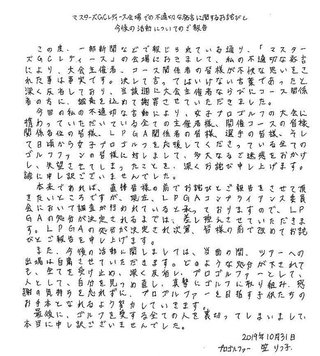 マスターズGCレディース会場での不適切な発言に関するお詫びと
今後の活動についてのご報告
この度、一部新聞などで報じられている通り、「マスターズGCレディース」の会場におきまして、私の不適切な発言
により、大会主催者、コース関係者の皆様が不快な思いをさ
れた事は事実です。決して言ってはいけない言葉であったと
深く反省しており、当該週に大会主催者ならびにコース関係
者の方に、誠意を込めて謝罪させていただきました。
今回の私の不適切な言動により、女子プロゴルフの大会に
携わっていただいている全ての主催者様、開催コースの皆様
関係各位の皆様、LPGA関係者の皆様、選手の皆様、そし
て日頃から女子プロゴルフを応援してくださっている全ての
ゴルフファンの皆様に対しまして、多大なるご迷惑をおかけ
し、失望させてしまったことを、深くお詫び申し上げます。
誠に申し訳ございませんでした。
本来であれば、直接皆様の前でお詫びとご報告をさせて頂
きたいところですが、現在、LPGAコンプライアンス委員
会において調査が行われていると承っておりますので、LP
GAの処分が決定されるまでは、差し控えさせていただきま
す。LPGAの処分が決定され次第、皆様の前で改めてお詫
びとご報告を申し上げます。
また、今後の活動に関しましては、当面の間、ツアーへの
出場は自粛させていただきます。どのような処分が下されて
も、全てを受け止め、深く反省し、プロゴルファーとして、
人として、自分を見つめ直し、真摯にゴルフに取り組み、感
謝の気持ちを忘れずに、プロゴルファーを目指す子供たちの
お手本となれるよう努力していきます。
最後に、ゴルフを愛する全ての人を裏切ってしまいまして、
本当に申し訳ございませんでした。
2019年10月31日
プロゴルファー 笠 りつ子